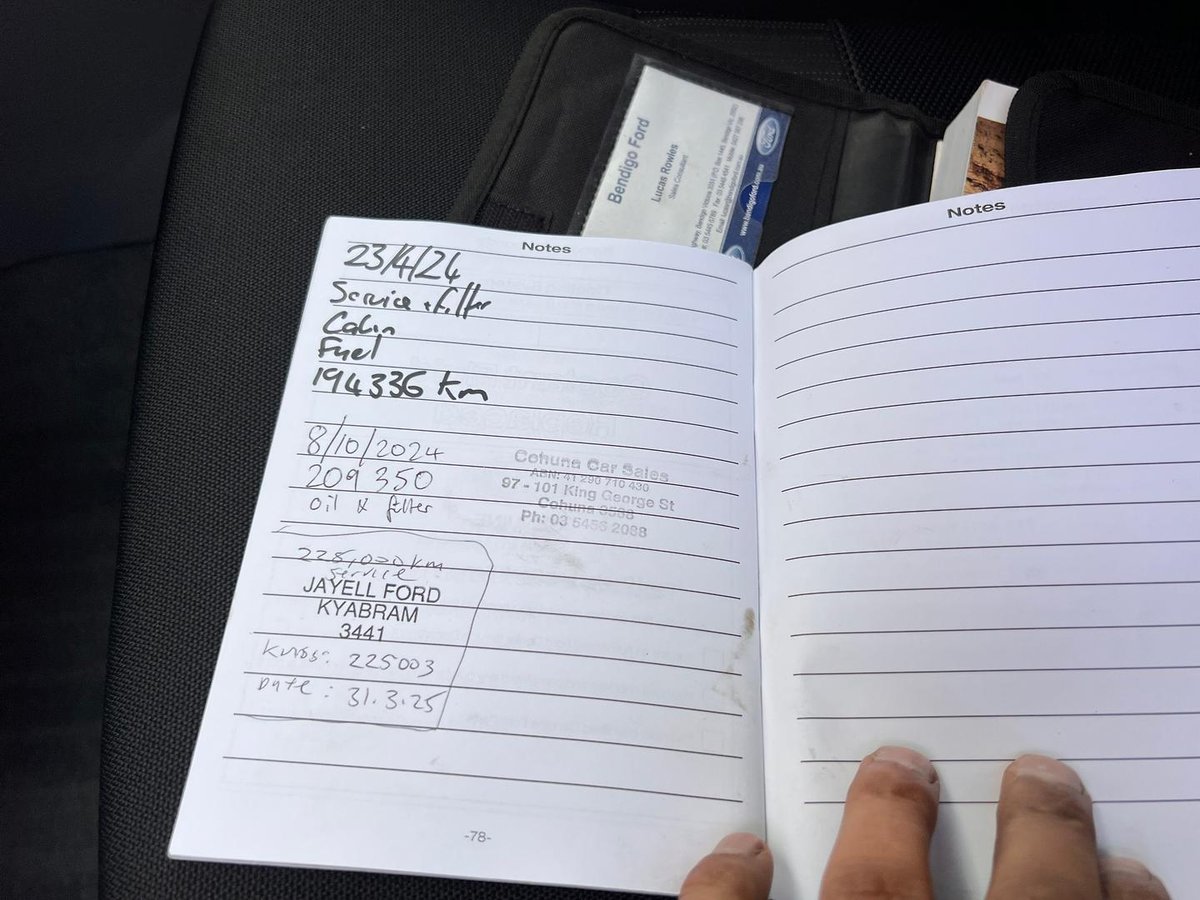 Bendigo Ford
Lucas Rowles
Sales Consultant
www.bendigoford.com.au
Ford
Notes
23/4/24
Service + filter
Cabin
Fuel
194336 km
8/10/2024
209 350
oil & filter
Cohuna Car Sales
ABN: 41 290 710 430
97 - 101 King George St
Cohuna 3568
Ph: 03 5456 2068
225,000 km
Service
JAYELL FORD
KYABRAM
3441
Kms: 225003
Date: 31.3.25
-78-
Notes